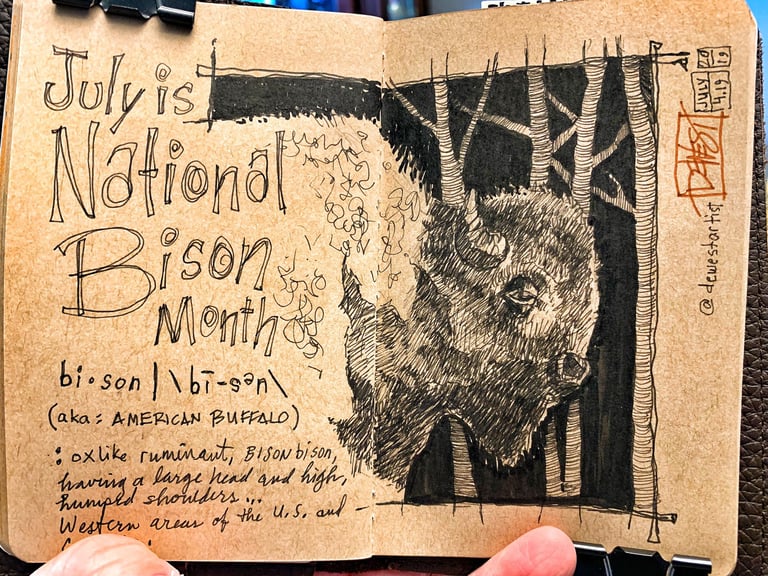 July is
National
Bison
Month
bi•son | \ bī-sən \
(aka: AMERICAN BUFFALO)
: oxlike ruminant, BISON bison,
having a large head and high,
humped shoulders...
Western areas of the U.S. and -
@dewestartist